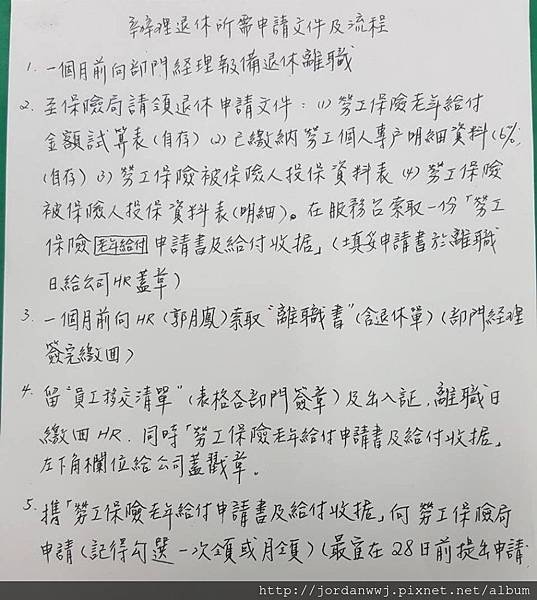 辦理退休所需申請文件及流程
1. 一個月前向部門経理報備退休離職
2. 至保險局請領退休申請文件：(1) 勞工保險老年給付
金額試算表(自存) (2) 已繳納勞工個人專戶明細資料(6%)
(自存) (3) 勞工保險被保險人投保資料表 (4) 勞工保險
被保險人投保資料表(明細)。在服務台索取一份「勞工
保險 老年給付 申請書及給付收据」(填妥申請書於離職
日給公司HR蓋章)
3. 一個月前向HR (郭月鳳)索取“離職書”(含退休單) (部門経理
簽完繳回)
4. 留“員工移交清單”(表格各部門簽章)及出入証，離職日
繳回HR. 同時「勞工保險老年給付申請書及給付收据」
左下角欄位給公司蓋戳章。
5. 攜「勞工保險老年給付申請書及給付收据」向勞工保險局
申請(記得勾選一次領或月領)(最宜在28日前提出申請
http://jordanwwj.pixnet.net/album